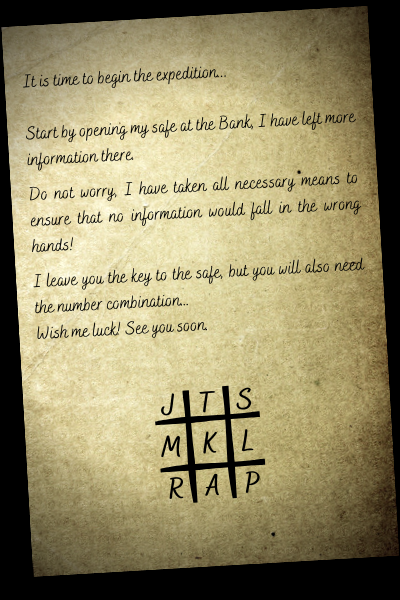 It is time to begin the expedition...
Start by opening my safe at the Bank, I have left more
information there.
Do not worry, I have taken all necessary means to
ensure that no information would fall in the wrong
hands!
I leave you the key to the safe, but you will also need
the number combination...
Wish me luck! See you soon.
J T S
M K L
R A P